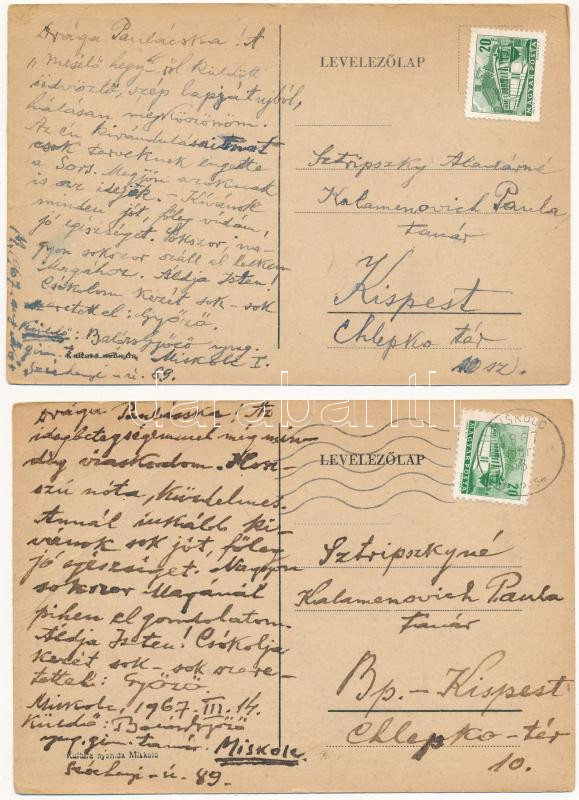 Drága Paulácska! A
„mesélő hegy"-ről küldött
üdvözlő, szép lapját ujból,
hálásan megköszönöm.
Az én kirándulásaimat
csak terveknek engedte
a Sors. Megjön azoknak
is az idejük. - Kívánok
minden jót, főleg vidám,
jó egészséget. Sokszor, na-
gyon sokszor száll el lelkem
Magához. Áldja Isten!
Csókolom kezét sok-sok
szeretettel: Győző.
Küldő: Balás Győző nyug.
Kultura nyomda
gim. Miskolc I.
Széchenyi-u. 89.
LEVELEZŐLAP
20
MAGYAR POSTA
Sztripszky Aladárné
Kalamenovich Paula
tanár
Kispest
Chlepko tér
10 sz.
Drága Paulácska! Az
idegbetegségemmel meg min-
dig viaskodom. Hosz-
szú nóta, küzdelmes.
Annál inkább kí-
vánok sok jót, főleg
jó egészséget. Nagyon
sokszor Magánál
pihen el gondolatom.
Áldja Isten! Csókolja
kezét sok-sok szere-
tettel: Győző.
Miskolc, 1967. III. 14.
Küldő: Balás Győző
nyug. gim. tanár. Miskolc
Kultura nyomda Miskolc
Széchenyi-u. 89.
LEVELEZŐLAP
MISKOLC
MAGYAR POSTA
20
Sztripszkyné
Kalamenovich Paula
tanár
Bp. - Kispest
Chlepko-tér
10.
darabanth